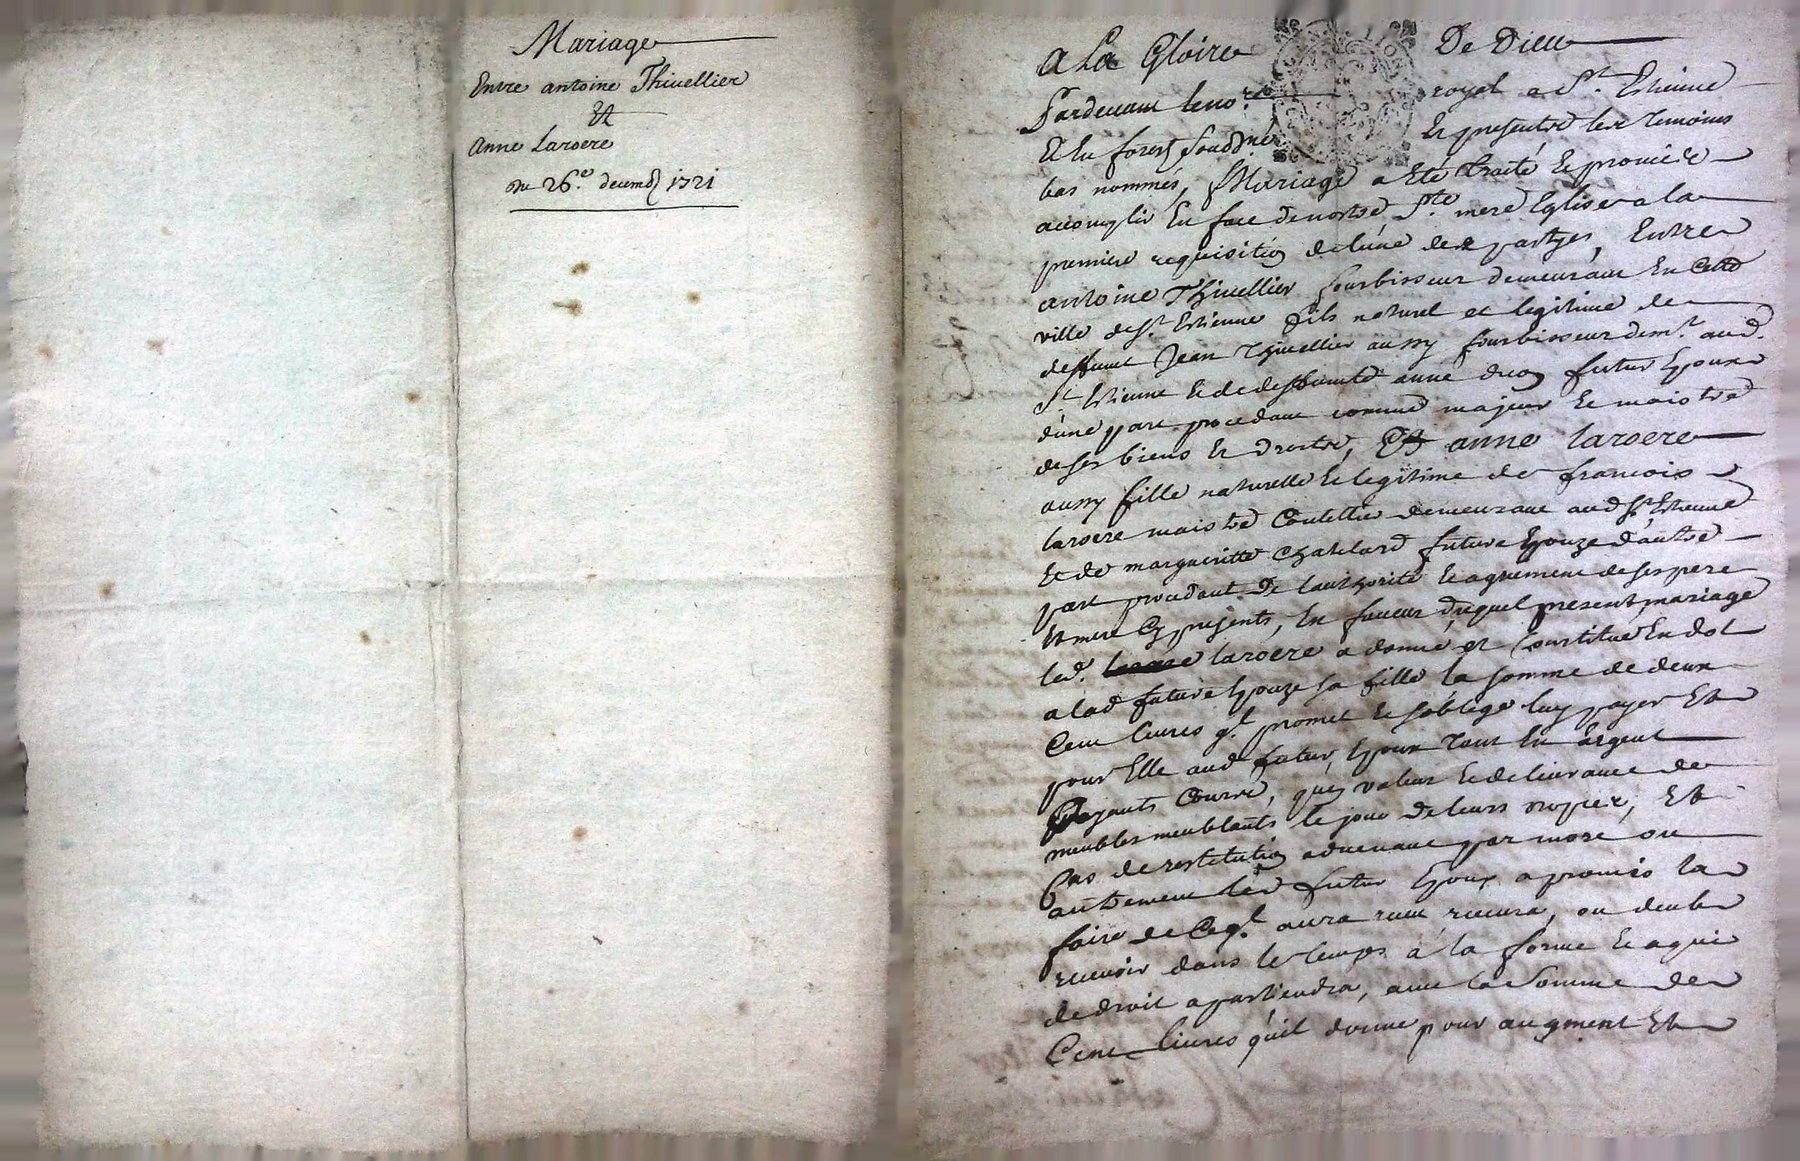 Mariage
Entre antoine Thiuellier
Et
Anne Laroere
Du 26.e decemb 1721
A La Gloire De Dieu
Pardeuant le no.re royal a St. Estienne
Et En forest soud.né Et presentes les temoins
bas nommés, Mariage a Eté traité Et promis
accomplir En face de nostre Ste. mere Eglise a la
premiere requisitiõ de lúne des partyes, Entre
antoine Thiuellier fourbisseur demeurant En cette
ville de St. Estienne fils naturel et legitime de
deffunt Jean Thiuellier aussy fourbisseur demt. aud.
St. Estienne Et de deffunte anne futur Epoux
dúne part procedant comme majeur Et maistre
de ses biens Et droits, Et anne laroere
aussy fille naturelle Et legitime de francois
laroere maistre Coutellier demeurant aud St Estienne
Et de margueritte Chatelard future Epouze dáutre
part procedant De lauthorité Et agrement de ses pere
Et mere Cy presents, En faueur duquel present mariage
led. laroere a donné et Constitué En dot
a lad future Epouze sa fille la somme de deux
Cent liures ql. promet Et soblige luy payer Et
pour Elle aud futur Epoux tant En argent
Courre, quén valeur Et deliurance de
meubles meublants le jour de leurs nopces, Et
Cas de restitutiõ aduenant par mort ou
autrement led futur Epoux a promis la
faire de Ce ql. aura receu, ou deub
receuoir dans le temps a la forme Et a qui
de droit apartiendra, auec la Somme de
Cent liures quil donne pour augment Et